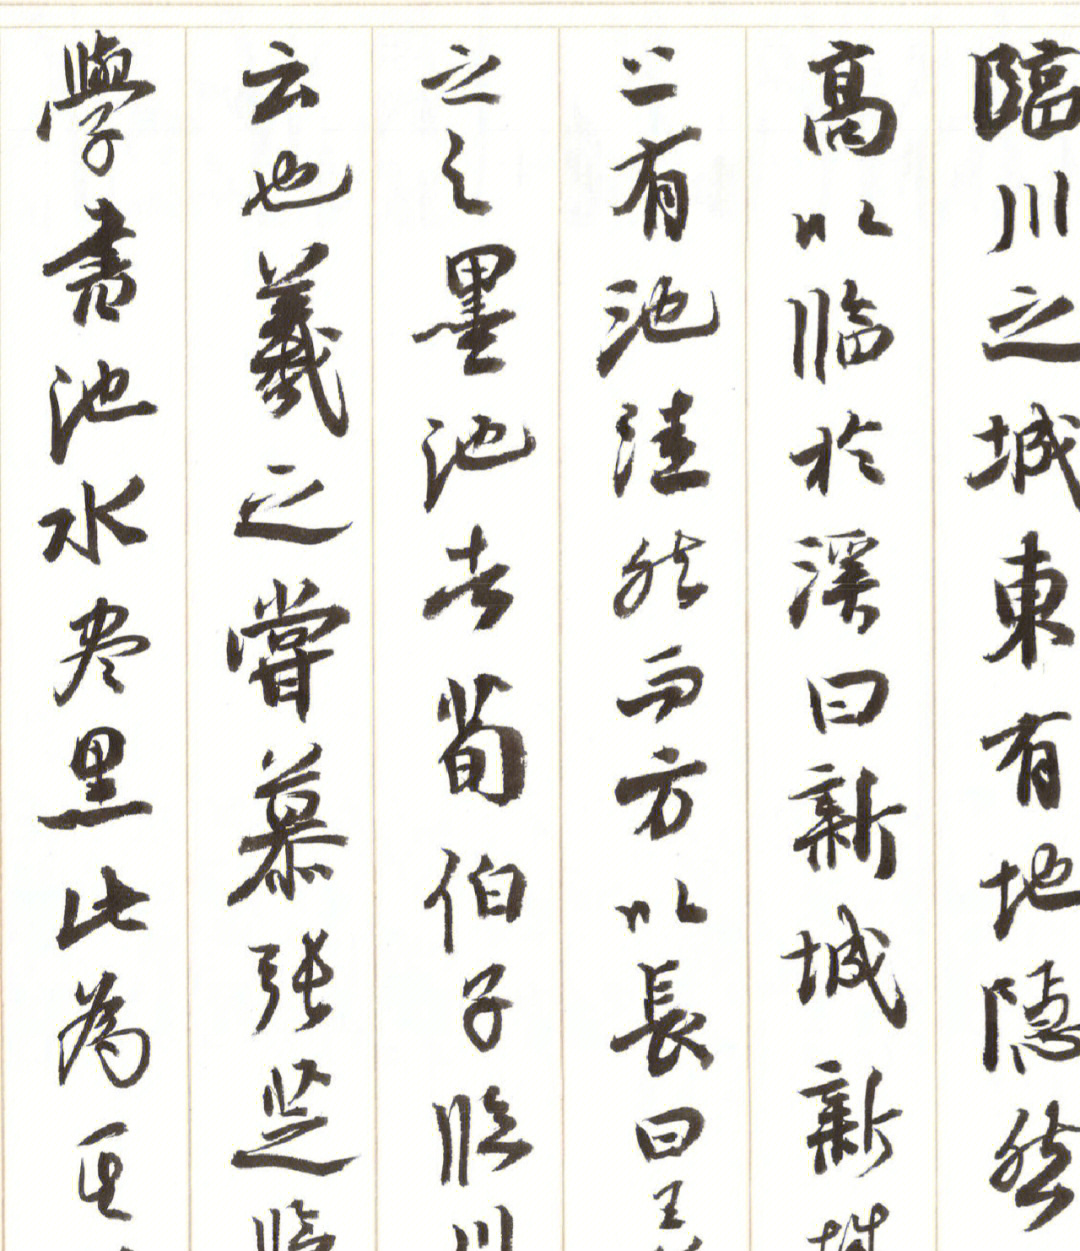 臨川之城東有地隱然
高以临於溪曰新城新城
上有池洼然而方以長曰王
之之墨池者荀伯子臨川
云也羲之嘗慕張芝臨
學書池水盡黑此為其